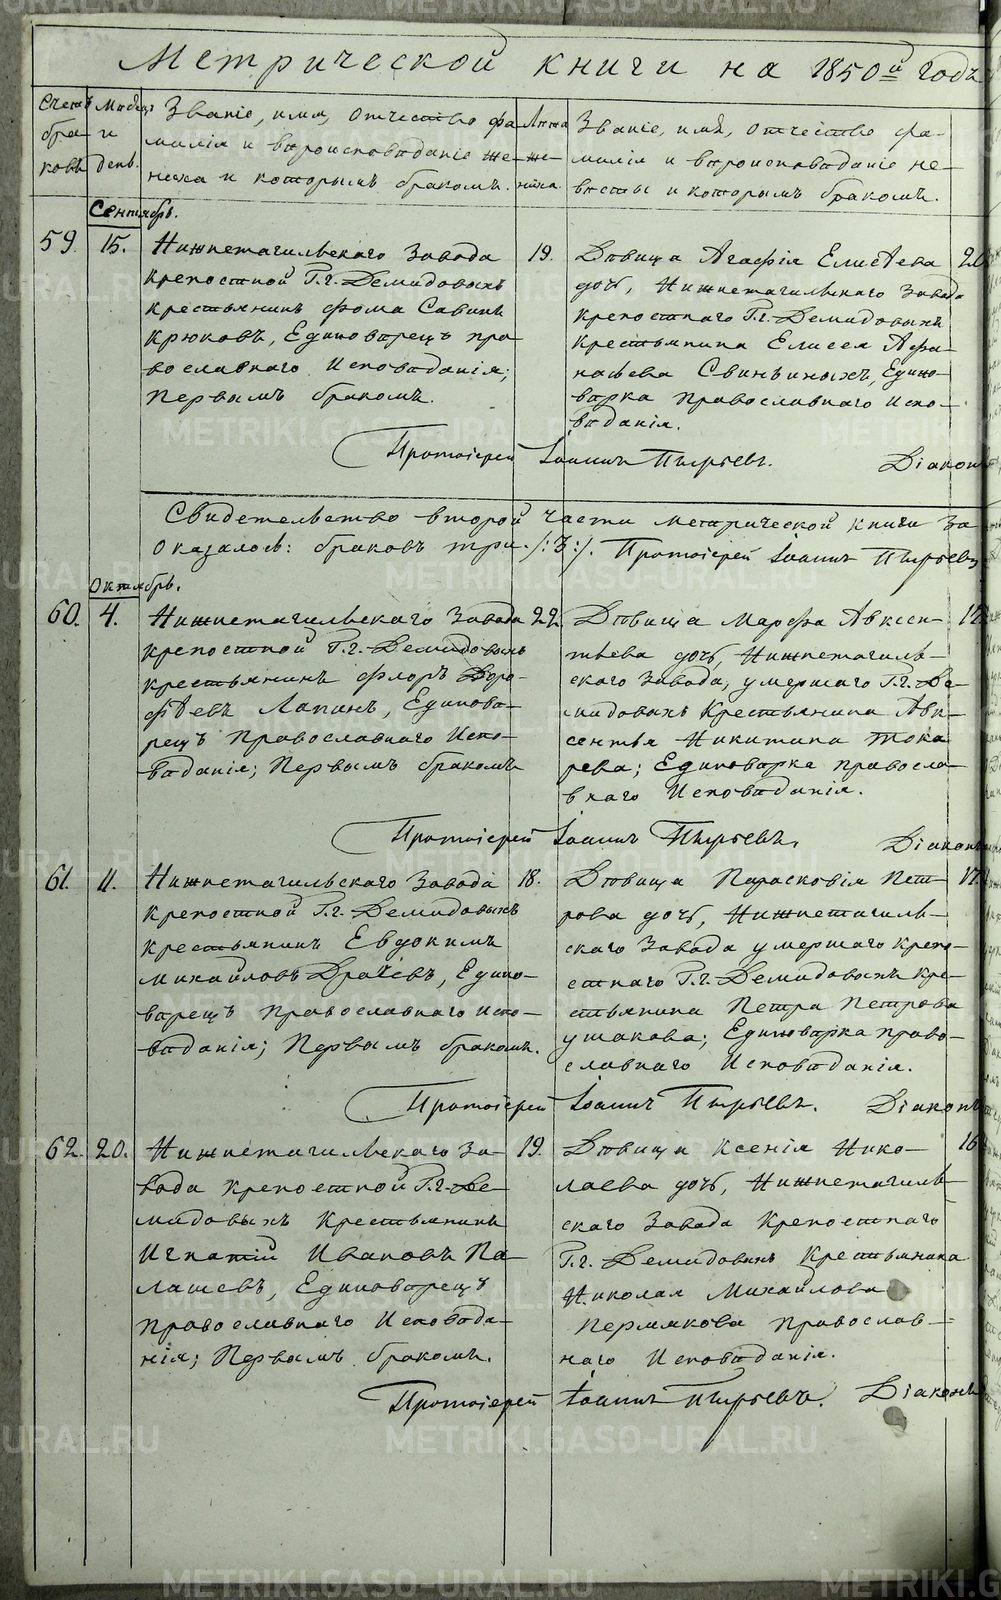 Метрической книги на 1850й годъ
Счетъ браковъ
Месяцъ и день.
Званіе, имя, отчество фамилія и вѣроисповѣданіе жениха и которымъ бракомъ.
Лѣта жениха.
Званіе, имя, отчество фамилія и вѣроисповѣданіе невѣсты и которымъ бракомъ.
Сентябрь.
59
15.
Нижнетагильскаго Завода
крепостной Г.г. Демидовыхъ
крестьянинъ Фома Савинъ
Крюковъ, Единоверецъ пра-
вославнаго Исповѣданія;
Первымъ бракомъ.
19.
Дѣвица Агафія Елисѣева
дочь, Нижнетагильскаго Завода
крепостнаго Г.г. Демидовыхъ
крестьянина Елисея Афа-
насьева Свиньиныхъ, Едино-
вѣрка православнаго Испо-
вѣданія.
20
Протоіерей Іоаннъ Пырьевъ. Діаконъ
Свидетельство второй части метрической книги За
Оказалось: браковъ три. /:3:/. Протоіерей Іоаннъ Пырьевъ
Октябрь.
60.
4.
Нижнетагильскаго Завода
крепостной Г.г. Демидовыхъ
крестьянинъ Флоръ Доро-
фѣевъ Лапинъ, Единовѣ-
рецъ Православнаго Испо-
вѣданія; Первымъ бракомъ
22.
Дѣвица Марфа Авксен-
тьева дочь, Нижнетагиль-
скаго Завода, умершаго Г.г. Де-
мидовыхъ Крестьянина Авк-
сентья Никитина Тока
рева; Единоверка правосла-
внаго Исповѣданія.
Протоіерей Іоаннъ Пырьевъ. Діаконъ
61.
11.
Нижнетагильскаго Завода
крепостной Г.г. Демидовыхъ
крестьянинъ Евдокимъ
Михайловъ Драчевъ, Едино-
вѣрецъ Православнаго Испо-
вѣданія; Первымъ бракомъ.
18.
Дѣвица Парасковія Пет-
рова дочь, Нижнетагиль-
скаго Завода умершаго крепо-
стнаго Г.г. Демидовыхъ кре-
стьянина Петра Петрова
Ушакова; Единоверка право-
славнаго Исповѣданія.
17.
Протоіерей Іоаннъ Пырьевъ. Діаконъ
62.
20.
Нижнетагильскаго За-
вода крепостной Г.г. Де-
мидовыхъ Крестьянинъ
Игнатій Ивановъ Па
лашевъ, Единоверецъ
православнаго Исповѣда-
нія; Первымъ бракомъ.
19.
Дѣвица Ксенія Нико-
лаева дочь, Нижнетагиль-
скаго Завода Крепостнаго
Г.г. Демидовыхъ Крестьянина
Николая Михайлова
Пермякова Православ-
наго Исповѣданія.
16
Протоіерей Іоаннъ Пырьевъ. Діаконъ
METRIKI.GASO-URAL.RU